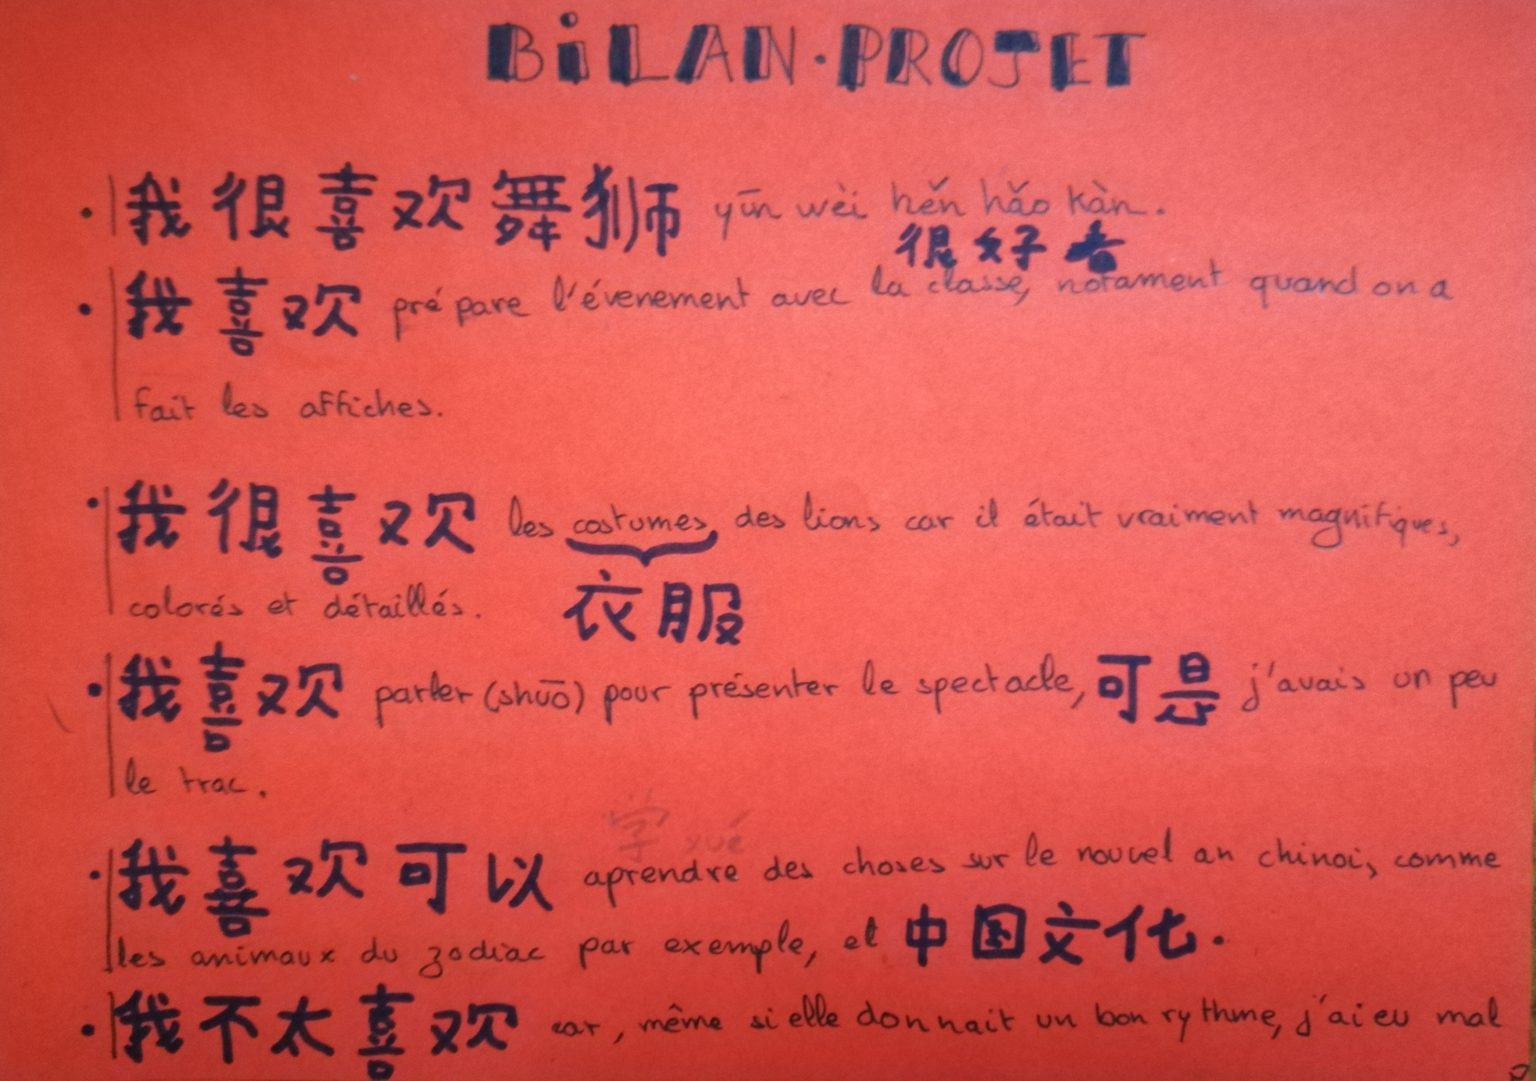 BiLAN · PROJET
• 我很喜欢舞狮 yīn wèi hěn hǎo kàn.
很好看
• 我喜欢 prépare l'évenement avec la classe, notament quand on a
fait les affiches.
• 我很喜欢 les costumes des lions car il était vraiment magnifiques,
colorés et détaillés.
衣服
• 我喜欢 parler (shuō) pour présenter le spectacle, 可是 j'avais un peu
le trac.
学 xué
• 我喜欢可以 aprendre des choses sur le nouvel an chinois, comme
les animaux du zodiac par exemple, et 中国文化.
• 我不太喜欢 car, même si elle donnait un bon rythme, j'ai eu mal